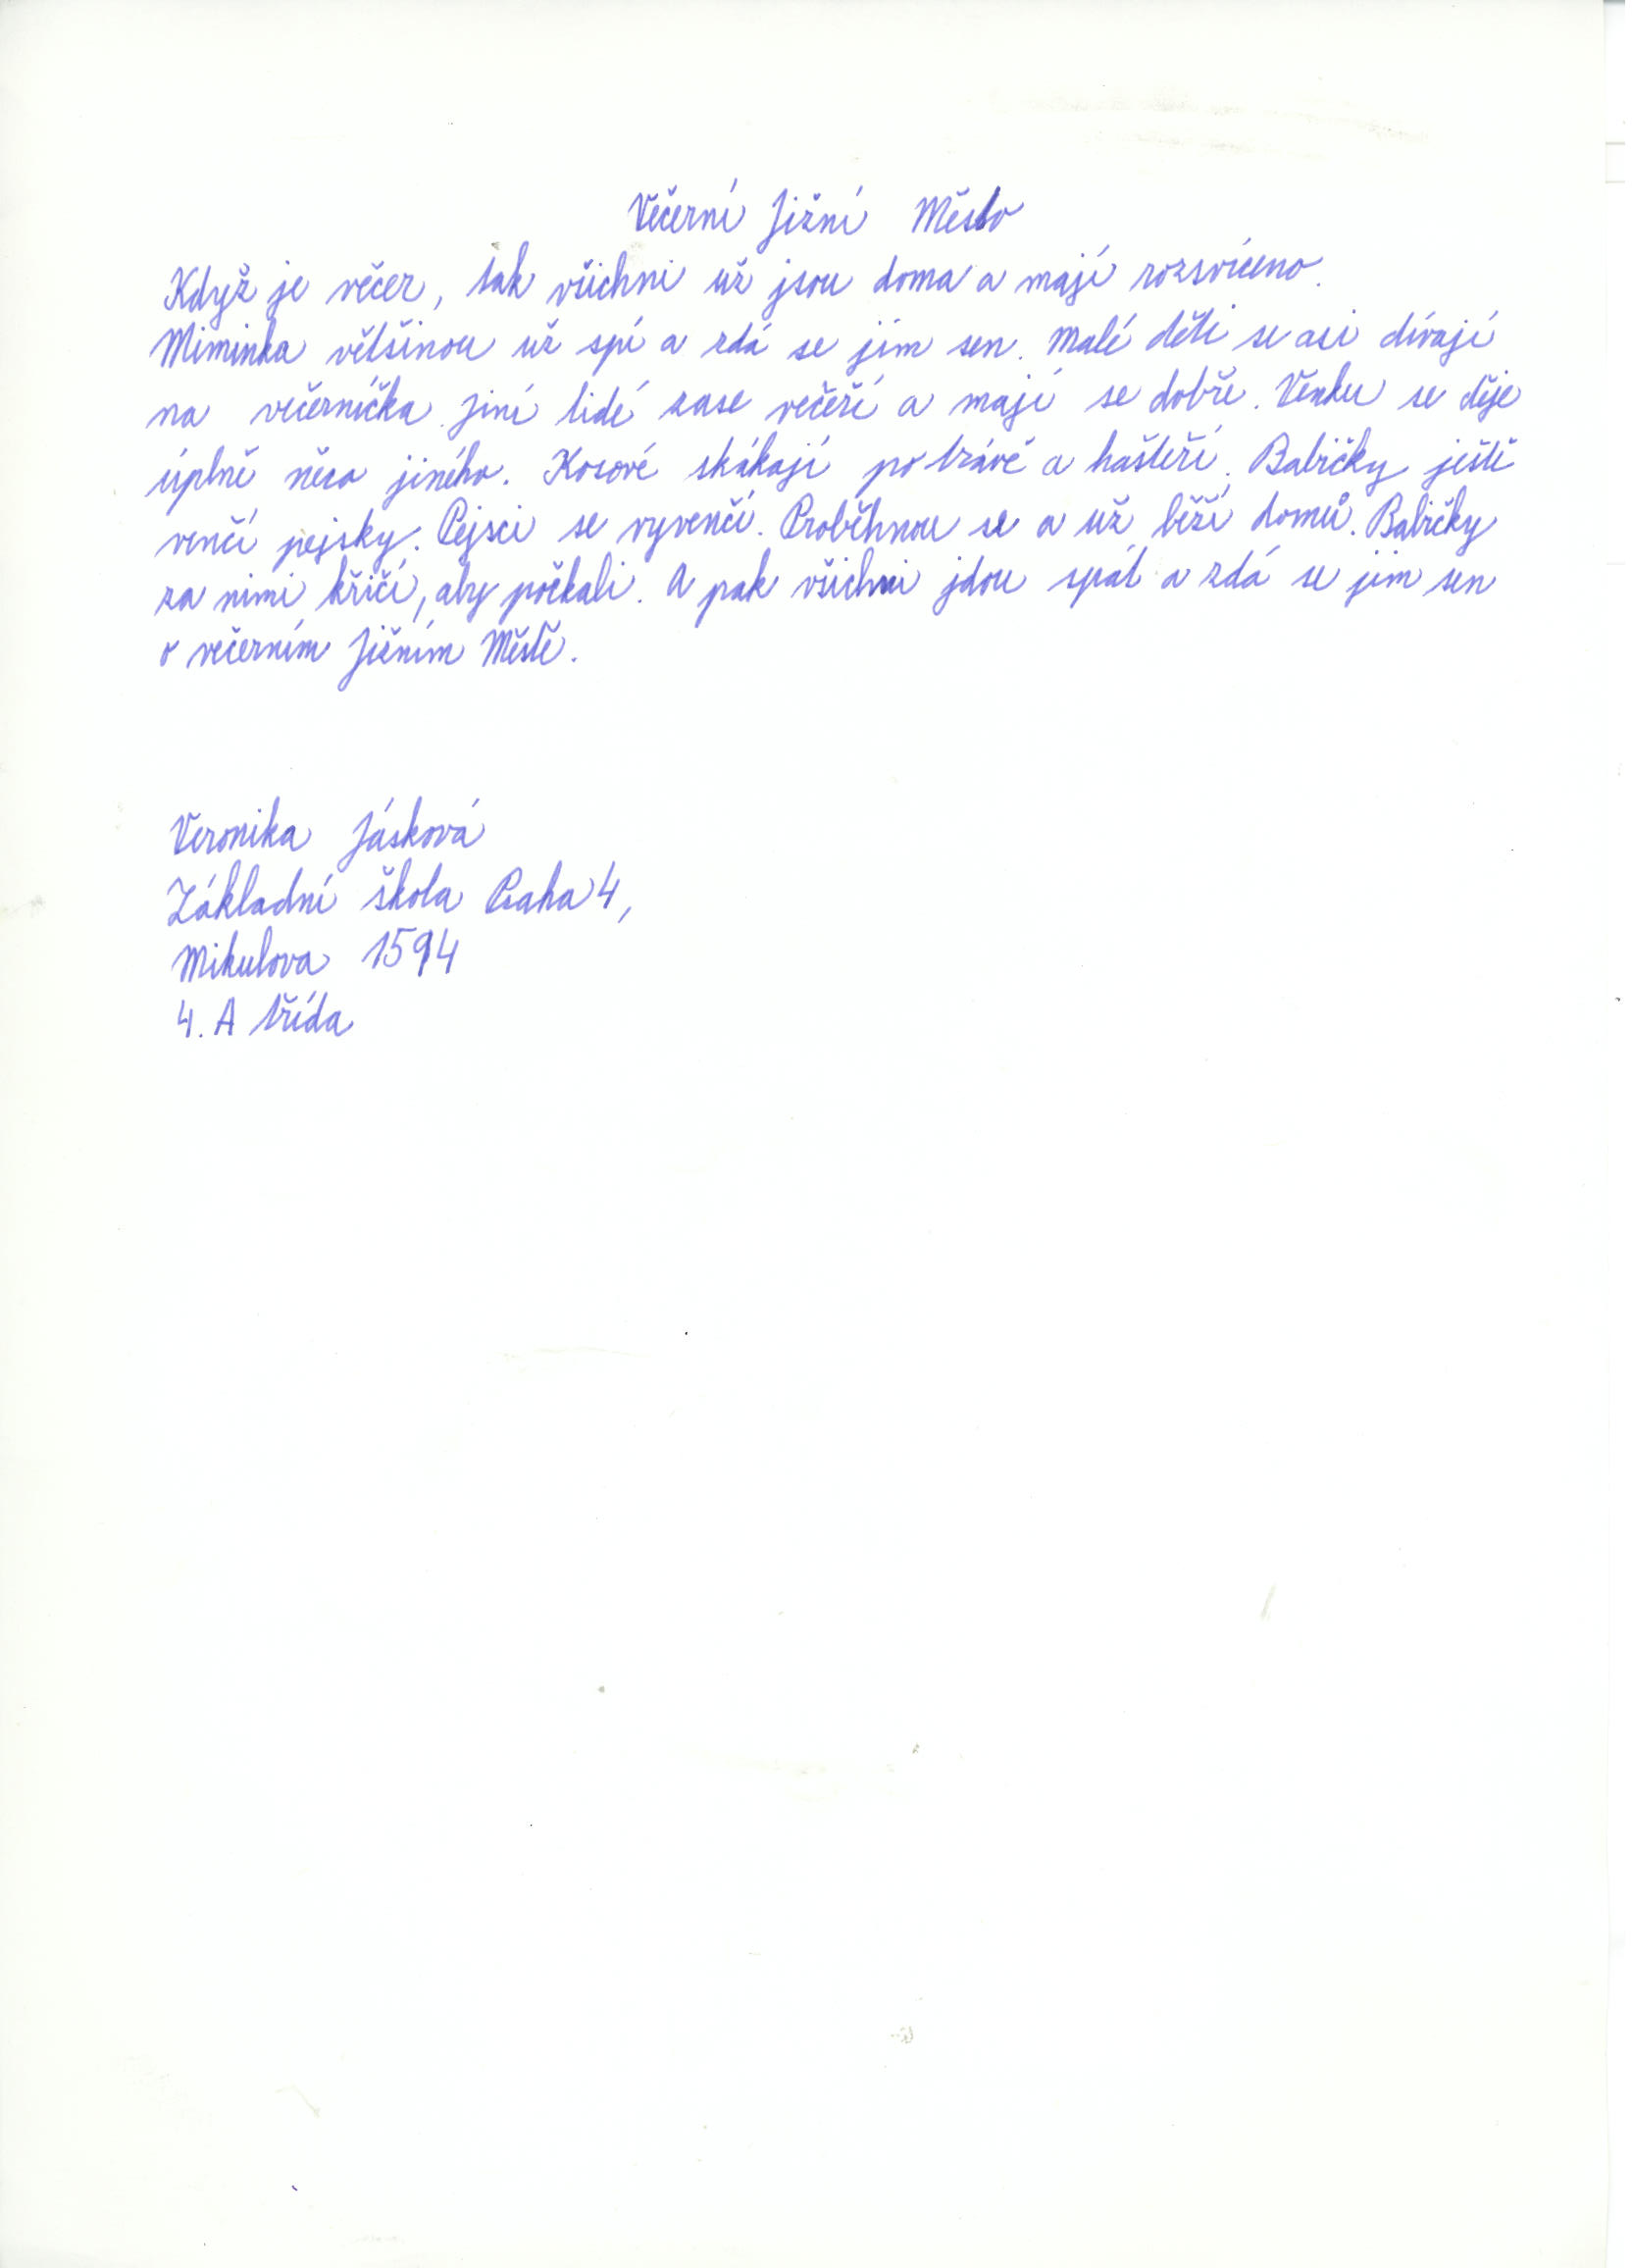 Večerní Jižní Město
Když je večer, tak všichni už jsou doma a mají rozsvíceno.
Miminka většinou už spí a zdá se jim sen. Malé děti se asi dívají
na večerníčka. Jiní lidé zase večeří a mají se dobře. Venku se děje
úplně něco jiného. Kosové skákají po trávě a hašteří. Babičky ještě
venčí pejsky. Pejsci se vyvenčí. Proběhnou se a už běží domů. Babičky
za nimi křičí, aby počkali. A pak všichni jdou spát a zdá se jim sen
o večerním Jižním Městě.
Veronika Jásková
Základní škola Praha 4,
Mikulova 1594
4. A třída